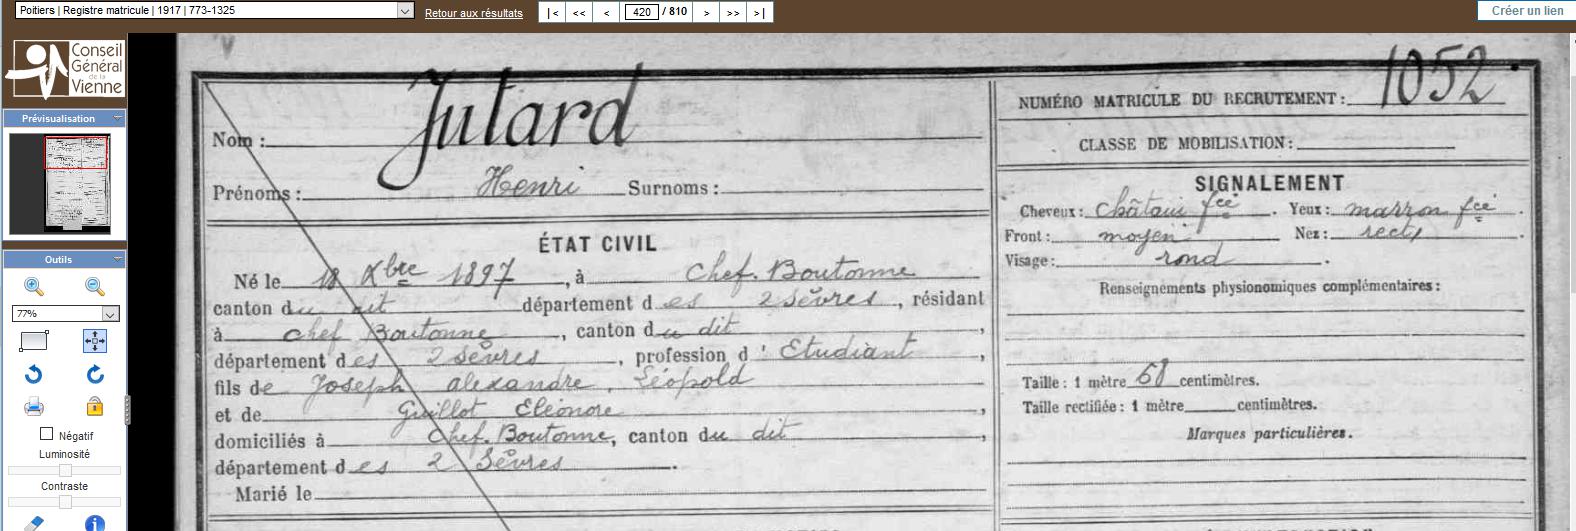 Poitiers | Registre matricule | 1917 | 773-1325
Retour aux résultats
|< << < 420 / 810 > >> >|
Créer un lien
Conseil
Général
de la
Vienne
Prévisualisation
Outils
77%
Négatif
Luminosité
Contraste
Nom : Jutard
Prénoms : Henri Surnoms :
ÉTAT CIVIL
Né le 18 Xbre 1897, à Chef. Boutonne
canton du dit département des 2 Sèvres, résidant
à Chef Boutonne, canton du dit,
département des 2 Sèvres, profession d'Etudiant,
fils de Joseph alexandre, Léopold
et de Guillot Eléonore,
domiciliés à Chef. Boutonne, canton du dit,
département des 2 Sèvres.
Marié le
NUMÉRO MATRICULE DU RECRUTEMENT : 1052
CLASSE DE MOBILISATION :
SIGNALEMENT
Cheveux : châtain fcé. Yeux : marron fcé.
Front : moyen Nez : rect.
Visage : rond.
Renseignements physionomiques complémentaires :
Taille : 1 mètre 68 centimètres.
Taille rectifiée : 1 mètre centimètres.
Marques particulières.